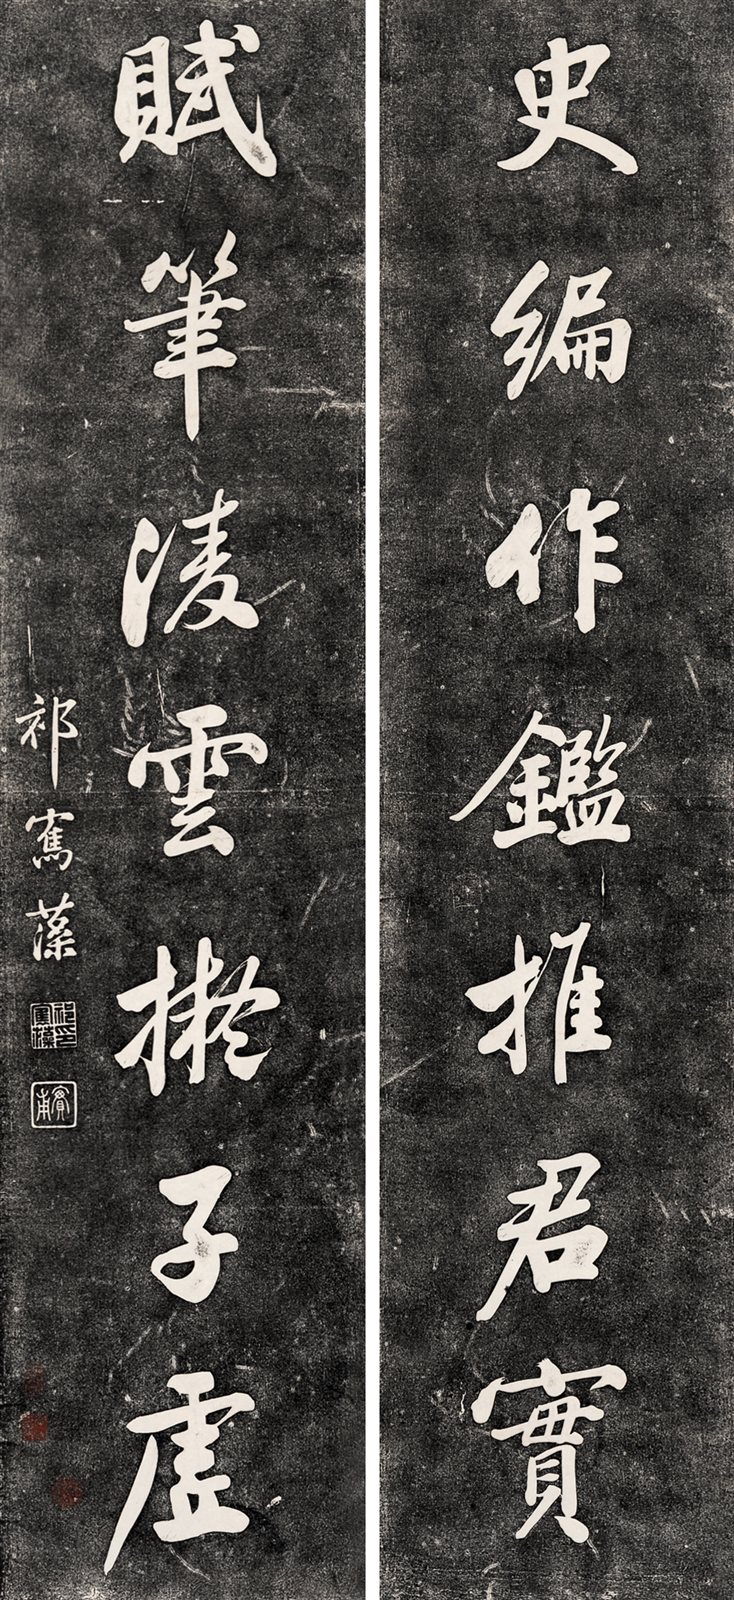 史編作鑑推君實
賦筆淩雲擬子虛
祁寯藻
祁寯藻印
實甫